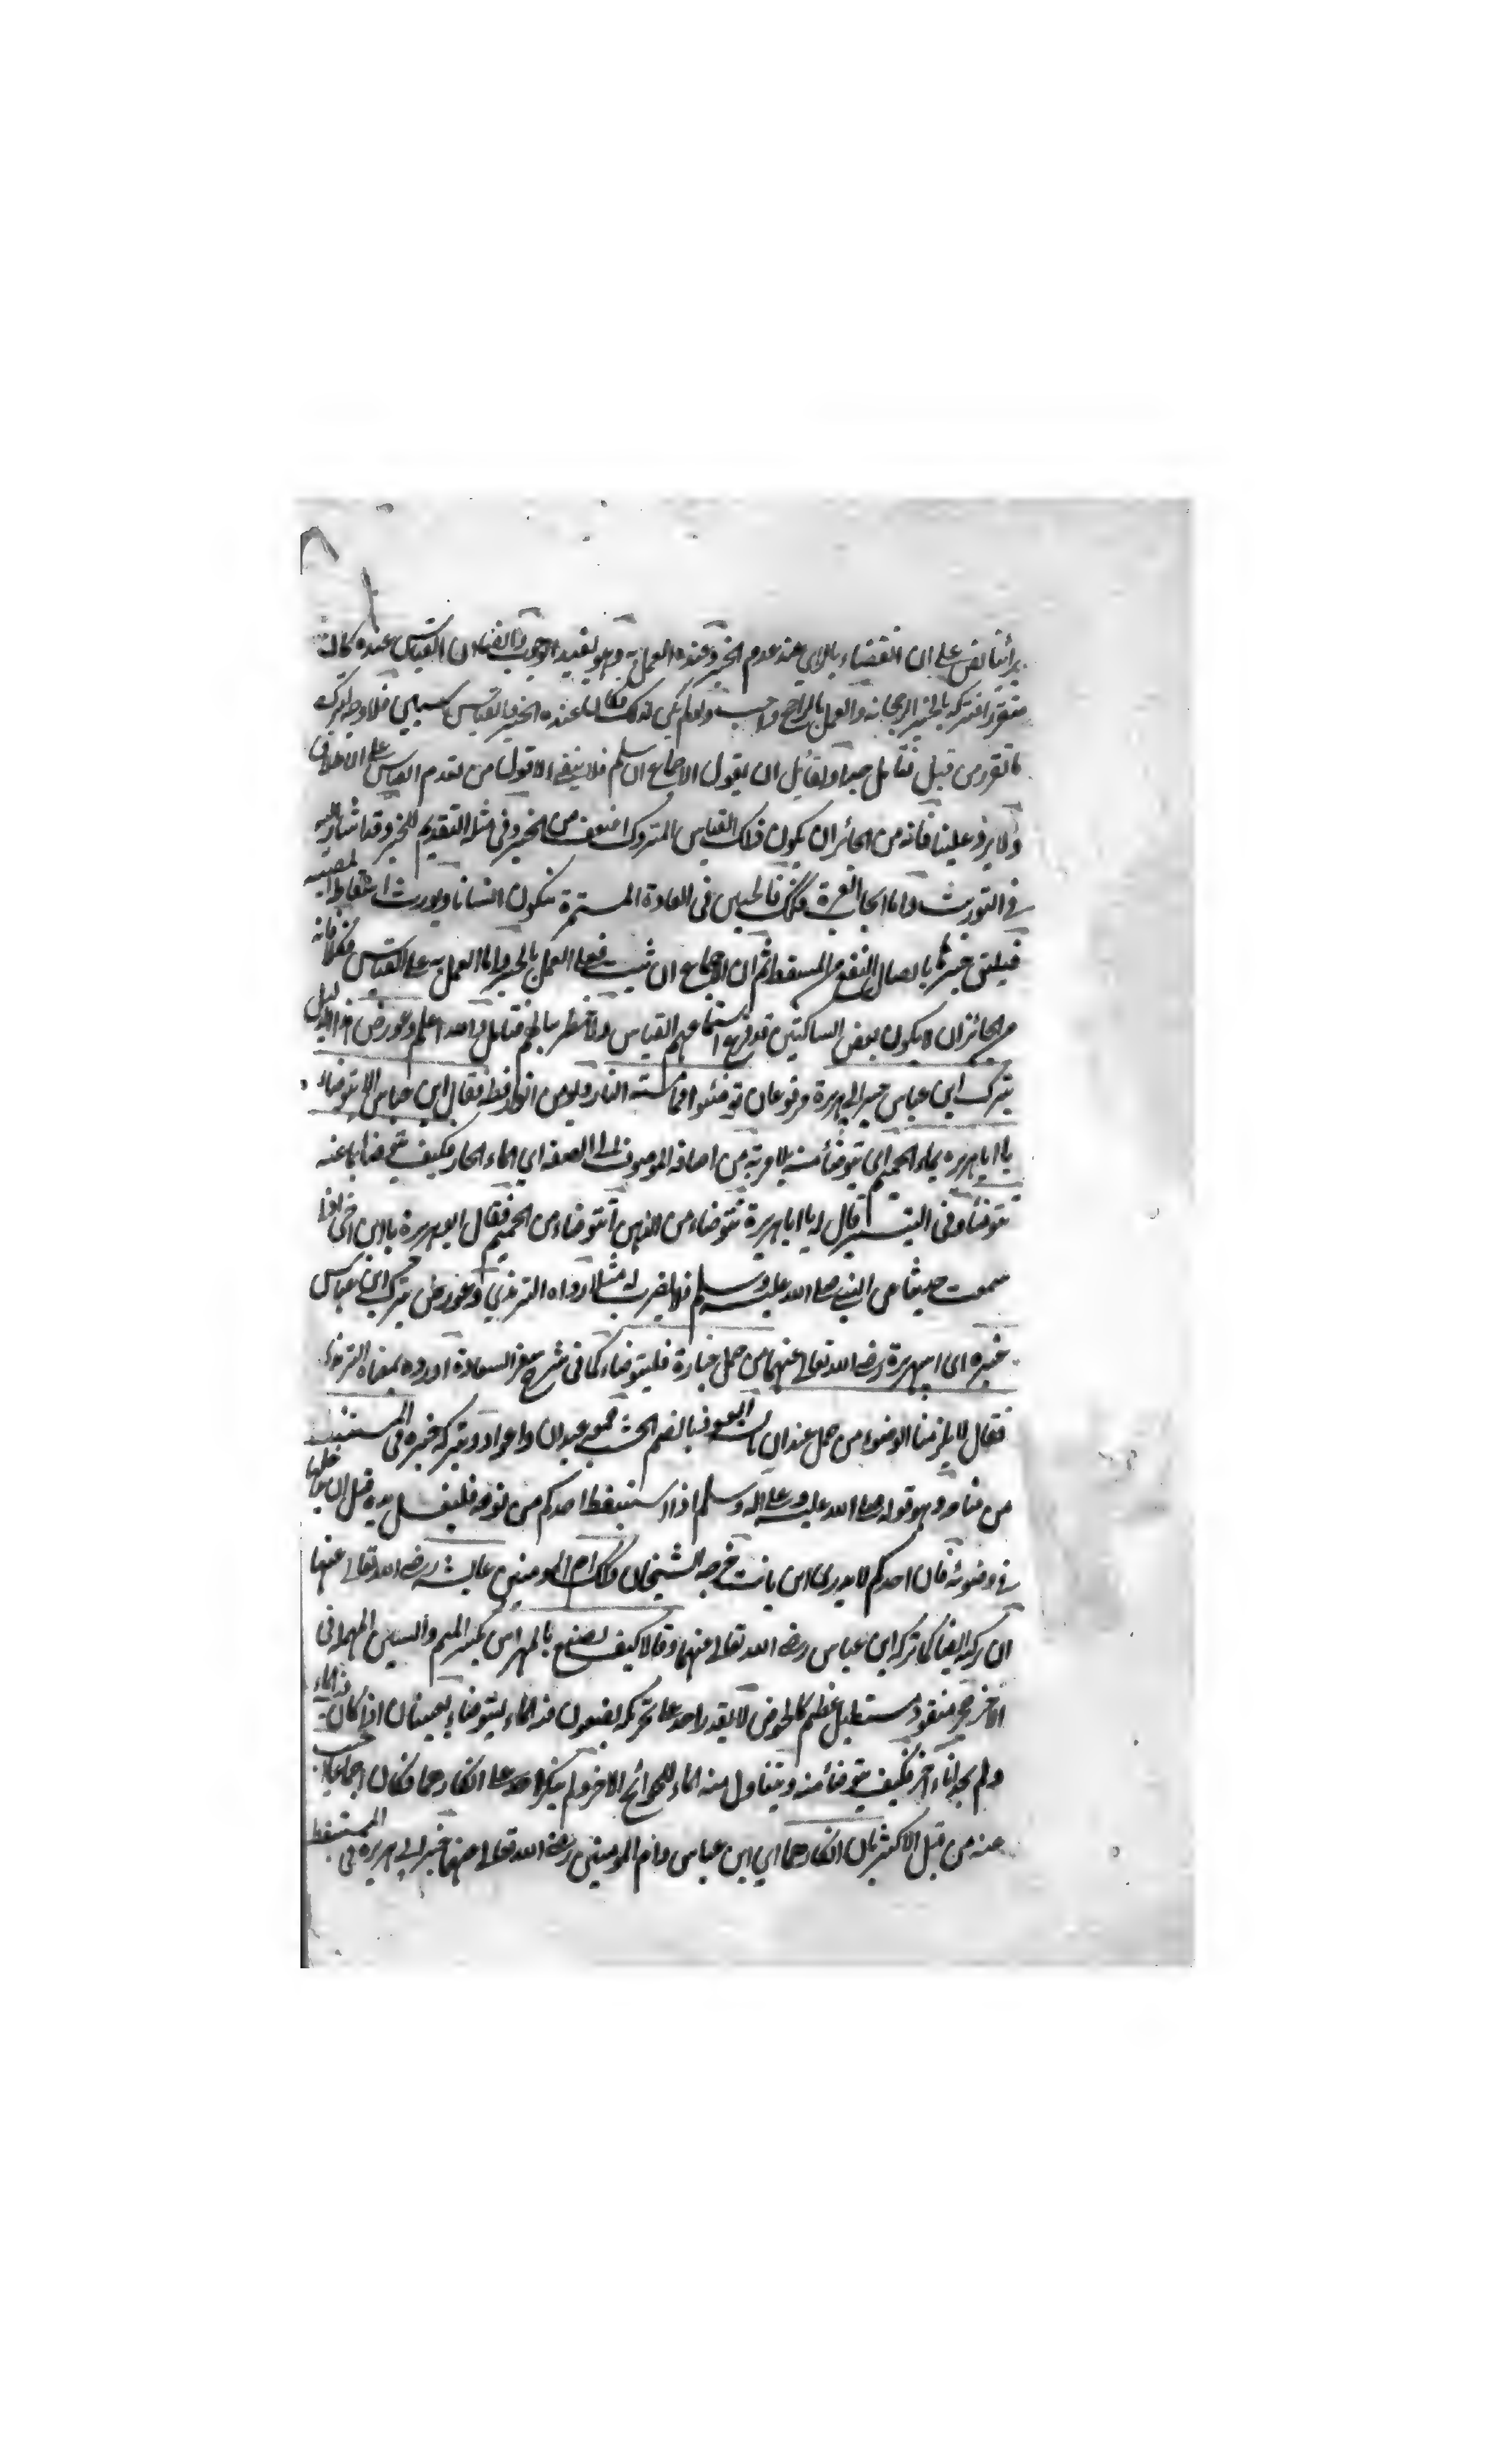 برأينا نص على ان القضاء بالراى عند عدم الخبر وعنده العمل به وهو يفيد الوجوب وايضا ان القياس عنده كان
متقررا فتركه بالخبر لرجحانه والعمل بالراجح واجب ولو لم يكن كذلك لكان عنده الخبر والقياس سيين فلا وجه لترك
ما تقرر من قبل فتأمل جدا ولقائل ان يقول الاجماع ان سلم فلا ينفى الا قول من يقدم القياس على الاطلاق
ولا يرد علينا فانه من الجائز ان يكون ذلك القياس المتروك اضعف من الخبر وفى مثله التقديم للخبر وقد اشار اليه
فى التوريث واما ايجاب الغرة فلذلك فالجنين فى العادة المستمرة يكون انسانا ويورث
بايصال النفع من المسقط ثم ان الاجماع ان ثبت فعلى العمل بالخبر واما العمل به على القياس فكلا فانه
من الجائز ان لا يكون بعض الساكتين قد قرع استماعهم القياس ولا خطر ببالهم فتأمل والله اعلم وعورض هذا الدليل
بترك ابن عباس خبر ابى هريرة مرفوعا توضئوا مما مسته النار ولو من اثوار اقط فقال ابن عباس الا نتوضاء
يا ابا هريرة بماء الحميم اى نتوضأ منه بلا مرية من اضافة الموصوف الى الصفة اى الماء الحار فكيف نتوضأ مما عنه
نتوضأ وفى التيسير قال يا ابا هريرة نتوضاء من الدهن أنتوضاء من الحميم فقال ابو هريرة يا ابن اخى اذا
سمعت حديثا عن النبى صلى الله عليه وسلم فلا تضرب له مثلا رواه الترمذى وعورض بترك ابن عباس
خبره اى ابى هريرة رضى الله تعالى عنهما من حمل جنازة فليتوضاء كما فى شرح سفر السعادة اورده بمعناه الترمذى
فقال لا يلزمنا الوضوء من حمل عيدان يابسة العود بالضم الخشب جمعه عيدان واعواد وبتركه خبره فى المستيقظ
من منامه وهو قوله صلى الله عليه وعلى اله وسلم اذا استيقظ احدكم من نومه فليغسل يده قبل ان يدخلها
فى وضوئه فان احدكم لا يدرى اين باتت خرجه الشيخان وكذلك ام المومنين عايشة رضى الله تعالى عنها
ان تركته ايضا كما تركه ابن عباس رضى الله تعالى عنهما وقالا كيف نصنع بالمهراس بكسر الميم والسين المهملة فى
الاخر حجر منقور مستطيل عظيم كالحوض لا يقدر احد على تحريكه يضعون فيه الماء ليتوضاء يعنيان اذا كان فيه الماء
ولم يجد اناء اخر فكيف يتوضأ منه ويتناول منه الماء للحوائج الاخر ولم ينكر احد على انكارهما فكان اجماعا
عنه من قبل الاكثر بان انكارهما اى ابن عباس وام المومنين رضى الله تعالى عنهما خبر ابى هريرة فى المستيقظ